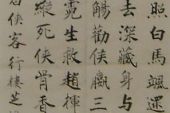 照白馬颯還
去深藏身与
觴勸侯嬴三
霓生救趙揮
縱死俠骨香
白俠客行